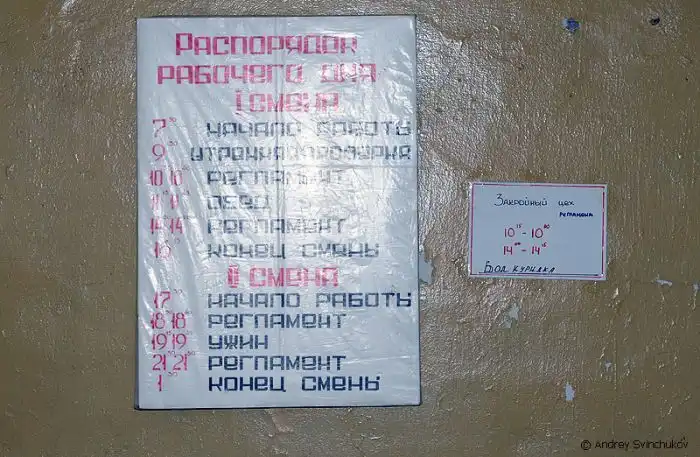 Распорядок
рабочего дня
I смена
7³⁰ начало работы
9 утренняя
10 10 регламент
11 11 обед
14⁰⁰ 14 регламент
16 конец смены
II смена
17 начало работы
18 18 регламент
19 19 ужин
21 21 регламент
1 конец смены
Закройный цех
регламент
10¹⁵ - 10
14⁰⁰ - 14¹⁵
© Andrey Svinchukov